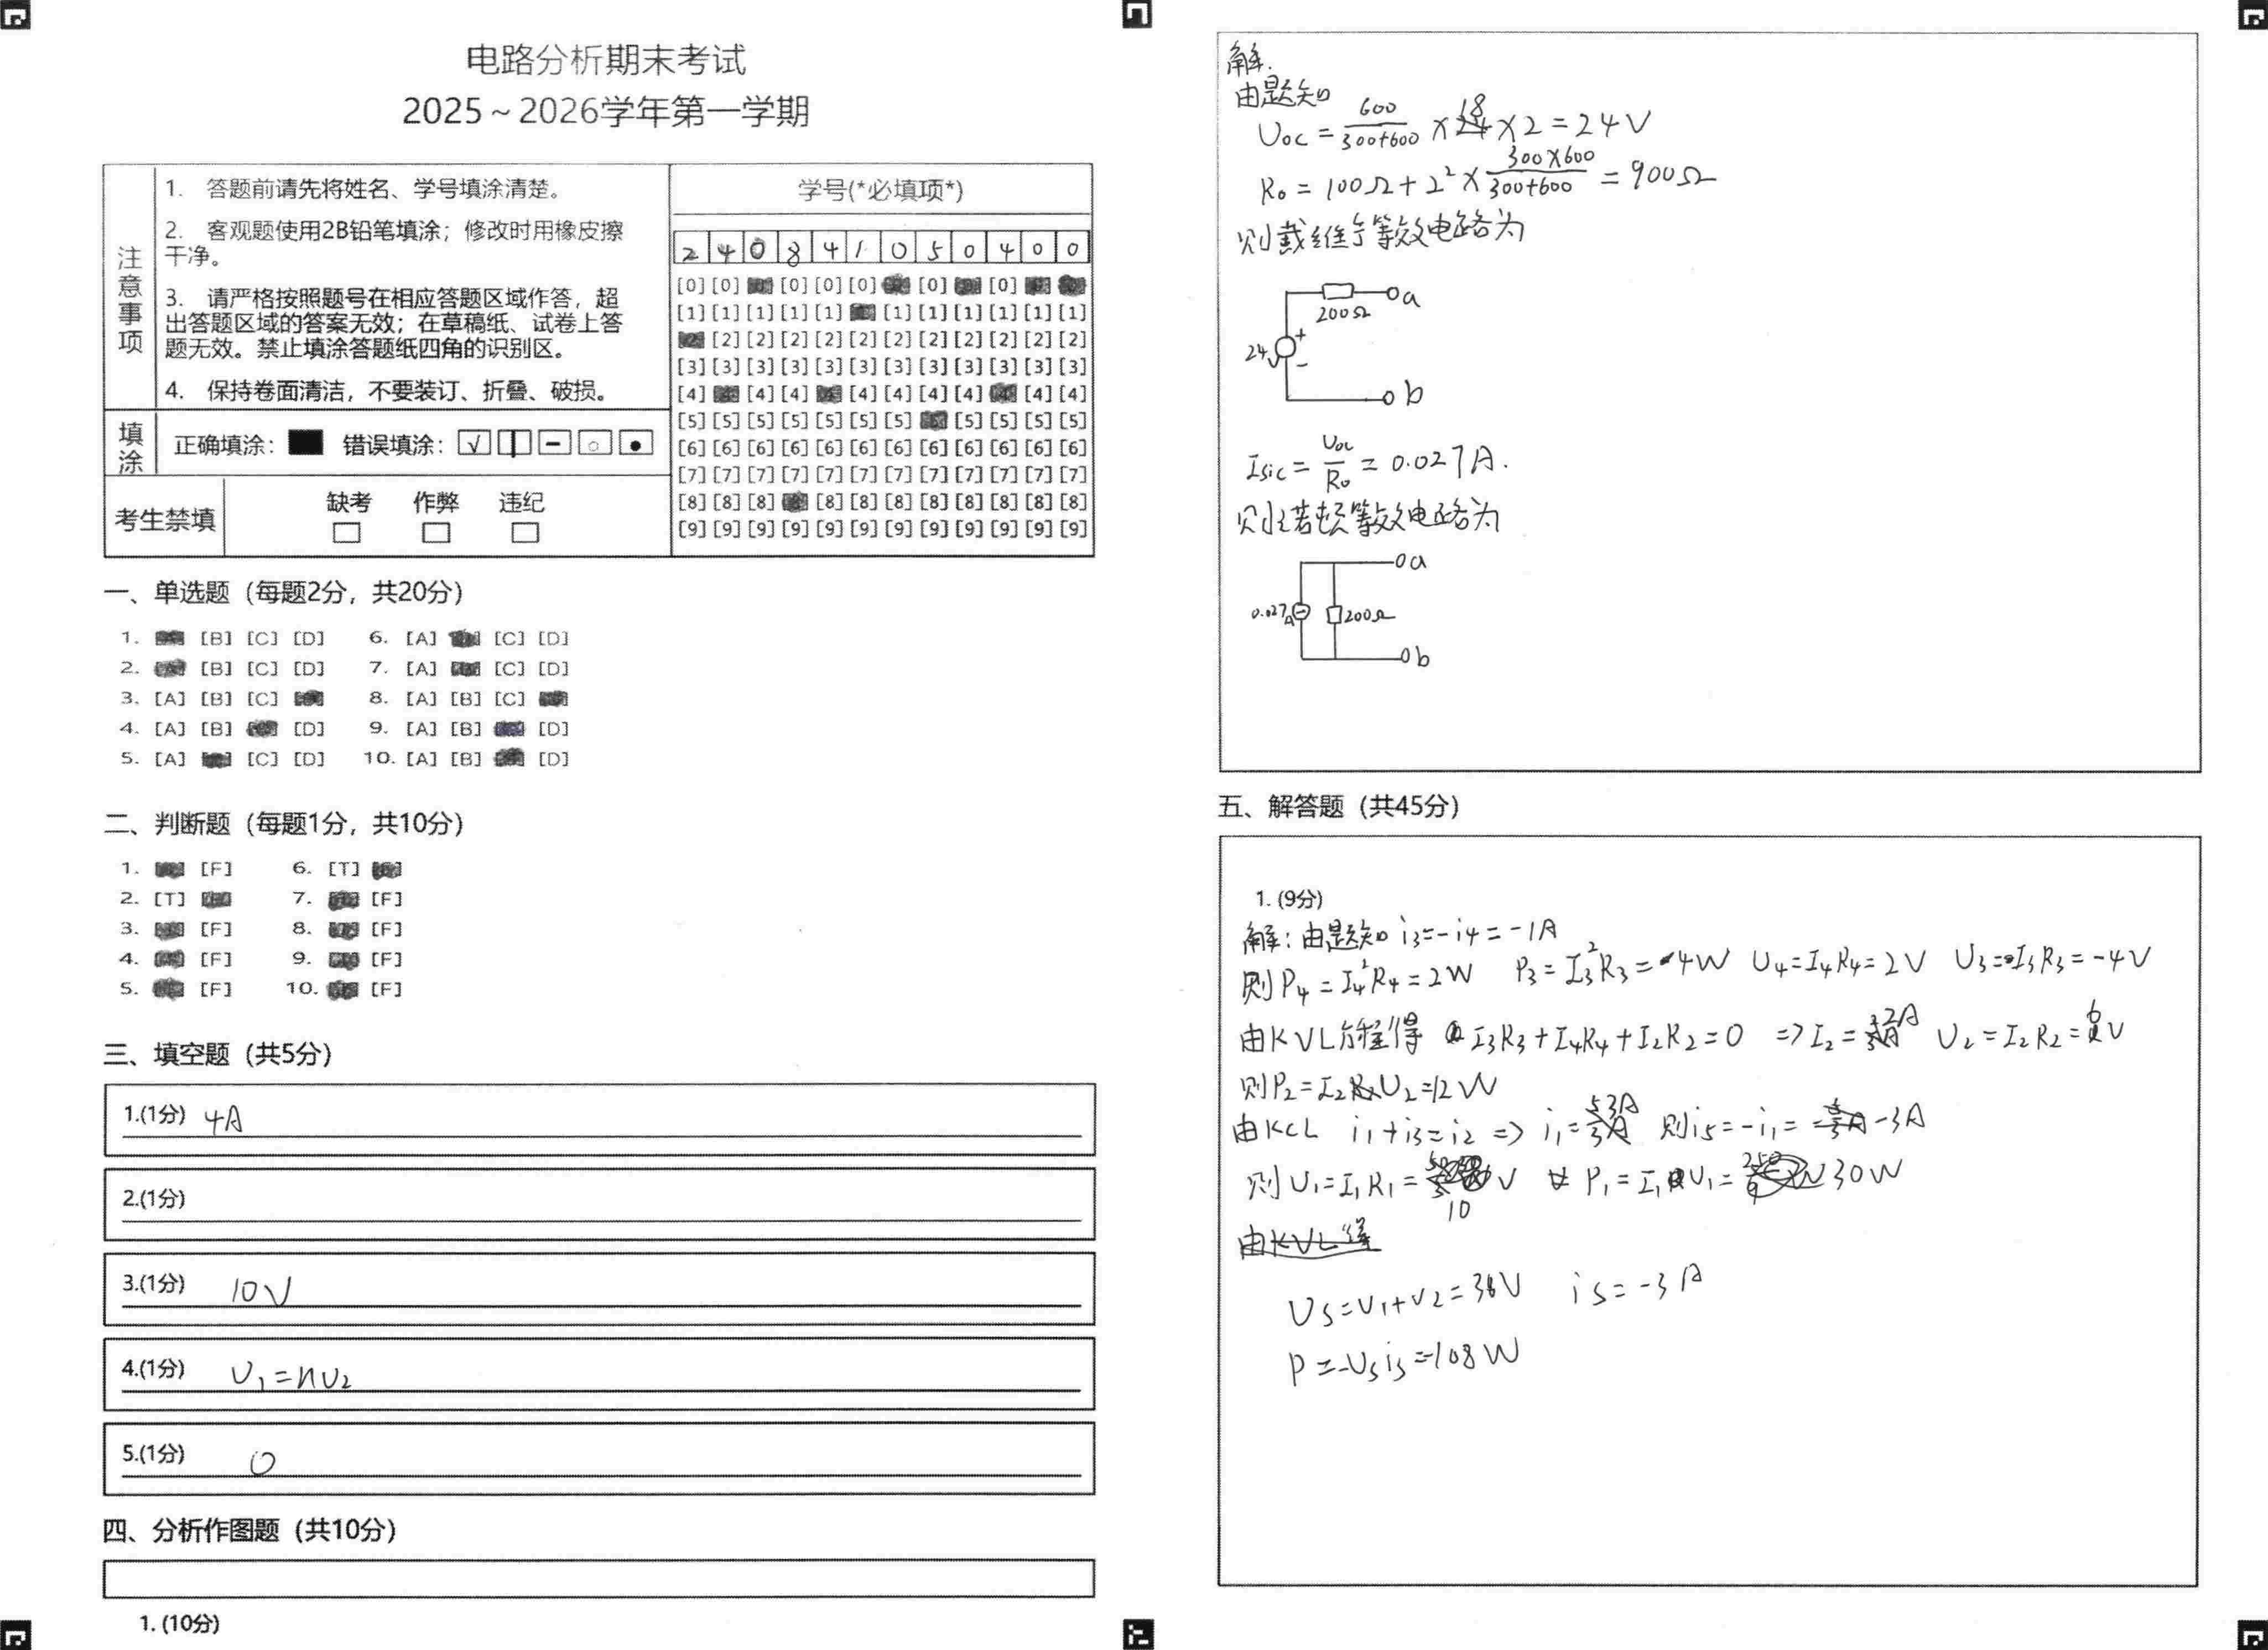 电路分析期末考试
2025～2026学年第一学期
注意事项
1. 答题前请先将姓名、学号填涂清楚。
2. 客观题使用2B铅笔填涂；修改时用橡皮擦
干净。
3. 请严格按照题号在相应答题区域作答，超
出答题区域的答案无效；在草稿纸、试卷上答
题无效。禁止填涂答题纸四角的识别区。
4. 保持卷面清洁，不要装订、折叠、破损。
填涂
正确填涂： 错误填涂：
考生禁填
缺考 作弊 违纪
学号(*必填项*)
2 4 0 8 4 1 0 5 0 4 0 0
[0] [0] [0] [0] [0] [0] [0] [0]
[1] [1] [1] [1] [1] [1] [1] [1] [1] [1] [1]
[2] [2] [2] [2] [2] [2] [2] [2] [2] [2] [2]
[3] [3] [3] [3] [3] [3] [3] [3] [3] [3] [3] [3]
[4] [4] [4] [4] [4] [4] [4] [4] [4]
[5] [5] [5] [5] [5] [5] [5] [5] [5] [5] [5]
[6] [6] [6] [6] [6] [6] [6] [6] [6] [6] [6] [6]
[7] [7] [7] [7] [7] [7] [7] [7] [7] [7] [7] [7]
[8] [8] [8] [8] [8] [8] [8] [8] [8] [8] [8]
[9] [9] [9] [9] [9] [9] [9] [9] [9] [9] [9] [9]
一、单选题（每题2分，共20分）
1. [B] [C] [D] 6. [A] [C] [D]
2. [B] [C] [D] 7. [A] [C] [D]
3. [A] [B] [C] 8. [A] [B] [C]
4. [A] [B] [D] 9. [A] [B] [D]
5. [A] [C] [D] 10. [A] [B] [D]
二、判断题（每题1分，共10分）
1. [F] 6. [T]
2. [T] 7. [F]
3. [F] 8. [F]
4. [F] 9. [F]
5. [F] 10. [F]
三、填空题（共5分）
1.(1分) 4A
2.(1分)
3.(1分) 10V
4.(1分) U₁=nU₂
5.(1分) 0
四、分析作图题（共10分）
1. (10分)
解.
由题知
Uoc = 600/(300+600) × 18 × 2 = 24V
R₀ = 100Ω + 2² × (300×600)/(300+600) = 900Ω
则戴维宁等效电路为
200Ω a
24V + -
b
Isc = Uoc/R₀ = 0.027A.
则诺顿等效电路为
a
0.027A 200Ω
b
五、解答题（共45分）
1. (9分)
解：由题知 i₃=-i₄=-1A
则P₄=I₄²R₄=2W P₃=I₃²R₃=4W U₄=I₄R₄=2V U₃=I₃R₃=-4V
由KVL方程得 I₃R₃+I₄R₄+I₂R₂=0 => I₂=2A U₂=I₂R₂=6V
则P₂=I₂U₂=12W
由KCL i₁+i₃=i₂ => i₁=3A 则is=-i₁=-3A
则U₁=I₁R₁=10V P₁=I₁U₁=30W
由KVL得
Us=U₁+U₂=36V is=-3A
P=-Usis=-108W